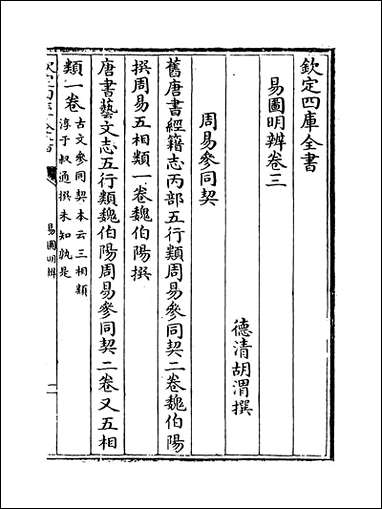 欽定四庫全書
易圖明辨卷三
德清胡渭撰
周易參同契
舊唐書經籍志丙部五行類周易參同契二卷魏伯陽
撰周易五相類一卷魏伯陽撰
唐書藝文志五行類魏伯陽周易參同契二卷又五相
類一卷
古文參同契本云三相類
淳于叔通撰未知孰是
易圖明辨